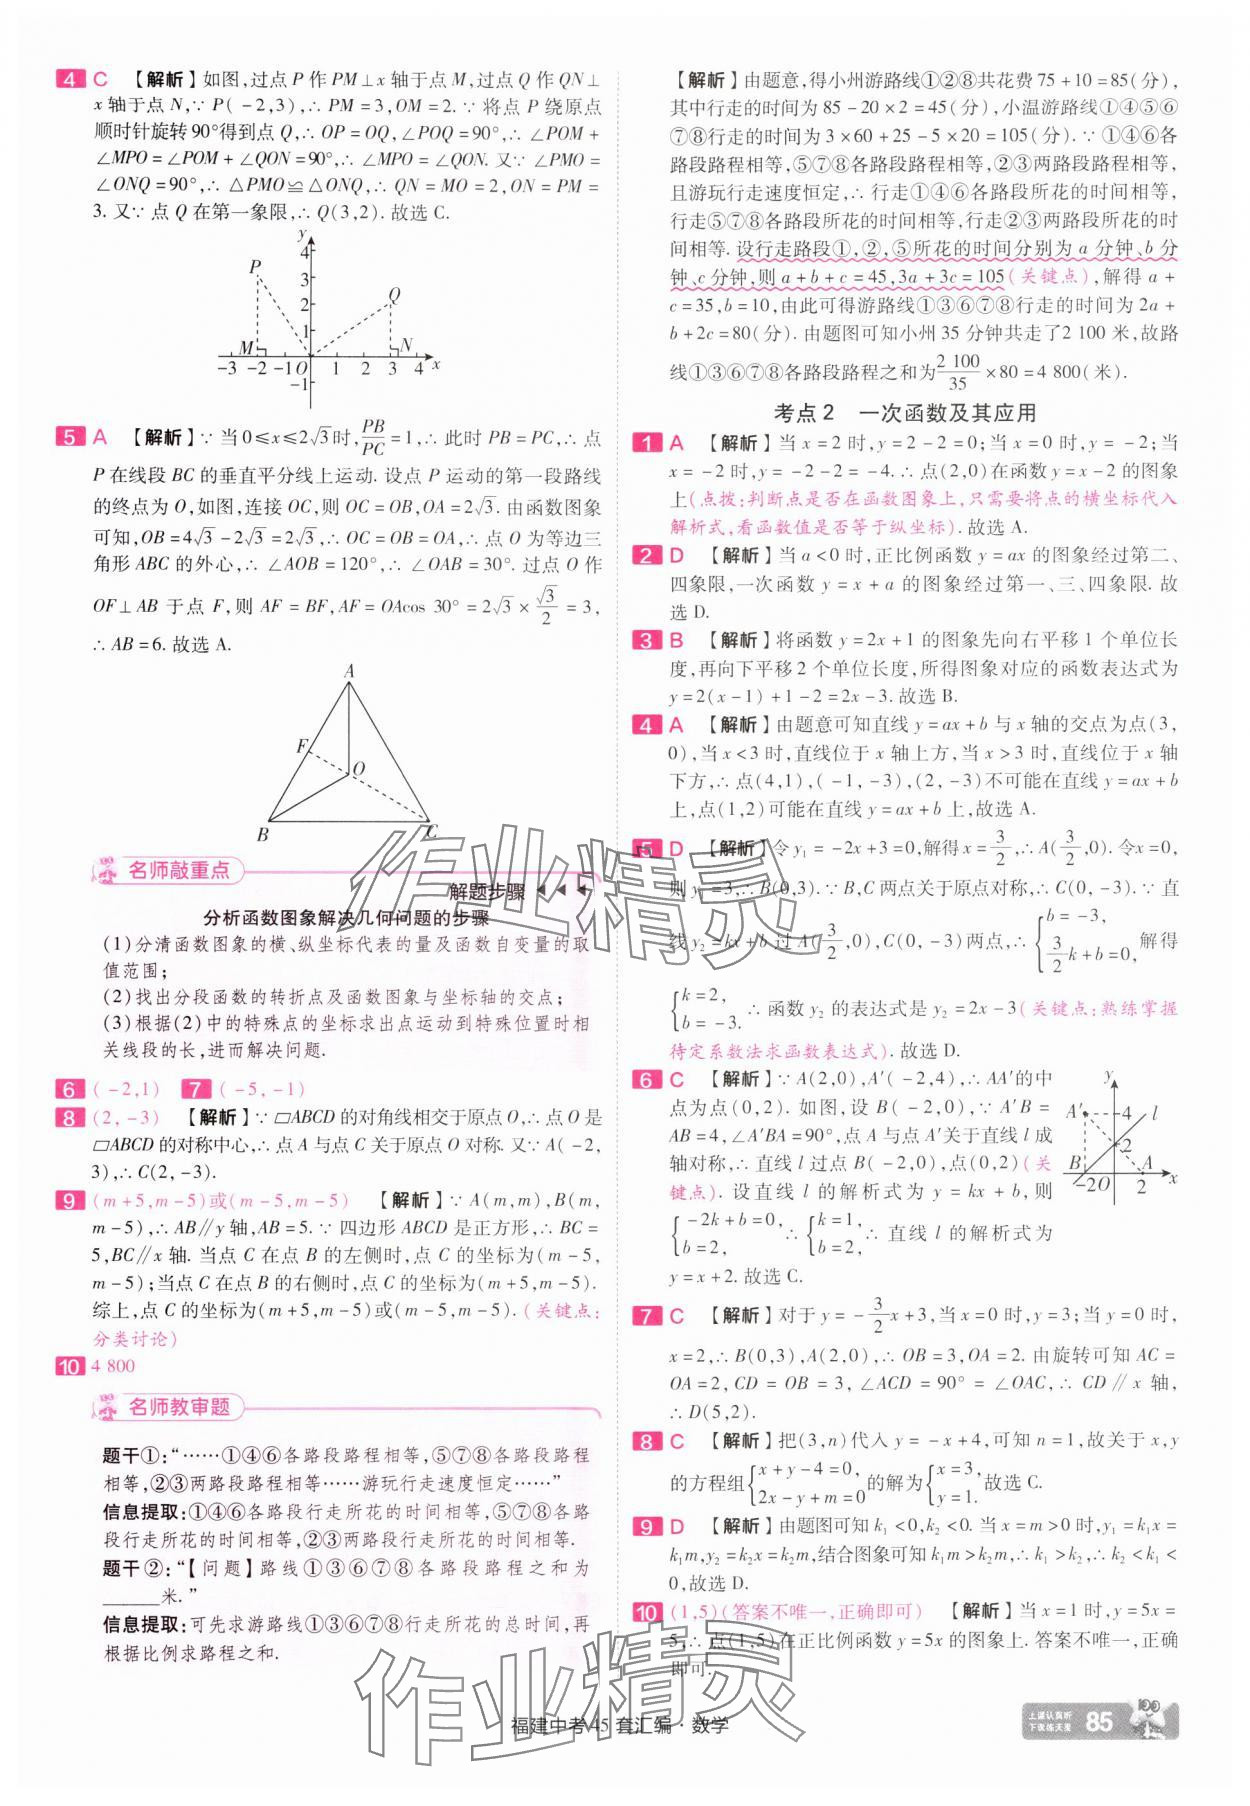 4 C 【解析】如图,过点 P 作 PM⊥x 轴于点 M,过点 Q 作 QN⊥
x 轴于点 N,∵ P(-2,3),∴ PM=3,OM=2. ∵ 将点 P 绕原点
顺时针旋转 90°得到点 Q,∴ OP=OQ,∠POQ=90°,∴ ∠POM+
∠MPO=∠POM+∠QON=90°,∴ ∠MPO=∠QON. 又∵ ∠PMO=
∠ONQ=90°,∴ △PMO≌△ONQ,∴ QN=MO=2,ON=PM=
3. 又∵ 点 Q 在第一象限,∴ Q(3,2). 故选 C.
y
4
3
2
1
-1
P
Q
M
N
-3 -2 -1 O 1 2 3 4 x
5 A 【解析】∵ 当 0≤x≤2√3时,PB/PC=1,∴ 此时 PB=PC,∴ 点
P 在线段 BC 的垂直平分线上运动. 设点 P 运动的第一段路线
的终点为 O,如图,连接 OC,则 OC=OB,OA=2√3. 由函数图象
可知,OB=4√3-2√3=2√3,∴ OC=OB=OA,∴ 点 O 为等边三
角形 ABC 的外心,∴ ∠AOB=120°,∴ ∠OAB=30°. 过点 O 作
OF⊥AB 于点 F,则 AF=BF,AF=OAcos 30°=2√3×√3/2=3,
∴ AB=6. 故选 A.
A
F
O
B
C
名师敲重点
解题步骤
分析函数图象解决几何问题的步骤
(1)分清函数图象的横、纵坐标代表的量及函数自变量的取
值范围;
(2)找出分段函数的转折点及函数图象与坐标轴的交点;
(3)根据(2)中的特殊点的坐标求出点运动到特殊位置时相
关线段的长,进而解决问题.
6 (-2,1) 7 (-5,-1)
8 (2,-3) 【解析】∵ ▱ABCD 的对角线相交于原点 O,∴ 点 O 是
▱ABCD 的对称中心,∴ 点 A 与点 C 关于原点 O 对称. 又∵ A(-2,
3),∴ C(2,-3).
9 (m+5,m-5)或(m-5,m-5) 【解析】∵ A(m,m),B(m,
m-5),∴ AB∥y 轴,AB=5. ∵ 四边形 ABCD 是正方形,∴ BC=
5,BC∥x 轴. 当点 C 在点 B 的左侧时,点 C 的坐标为(m-5,
m-5);当点 C 在点 B 的右侧时,点 C 的坐标为(m+5,m-5).
综上,点 C 的坐标为(m+5,m-5)或(m-5,m-5). (关键点:
分类讨论)
10 4 800
名师教审题
题干①:“……①④⑥各路段路程相等,⑤⑦⑧各路段路程
相等,②③两路段路程相等……游玩行走速度恒定……”
信息提取:①④⑥各路段行走所花的时间相等,⑤⑦⑧各路
段行走所花的时间相等,②③两路段行走所花的时间相等.
题干②:“【问题】路线①③⑥⑦⑧各路段路程之和为
______米.”
信息提取:可先求游路线①③⑥⑦⑧行走所花的总时间,再
根据比例求路程之和.
【解析】由题意,得小州游路线①②⑧共花费 75+10=85(分),
其中行走的时间为 85-20×2=45(分),小温游路线①④⑤⑥
⑦⑧行走的时间为 3×60+25-5×20=105(分). ∵ ①④⑥各
路段路程相等,⑤⑦⑧各路段路程相等,②③两路段路程相等,
且游玩行走速度恒定,∴ 行走①④⑥各路段所花的时间相等,
行走⑤⑦⑧各路段所花的时间相等,行走②③两路段所花的时
间相等. 设行走路段①,②,⑤所花的时间分别为 a 分钟、b 分
钟、c 分钟,则 a+b+c=45,3a+3c=105(关键点),解得 a+
c=35,b=10,由此可得游路线①③⑥⑦⑧行走的时间为 2a+
b+2c=80(分). 由题图可知小州 35 分钟共走了2 100 米,故路
线①③⑥⑦⑧各路段路程之和为2 100/35×80=4 800(米).
考点 2 一次函数及其应用
1 A 【解析】当 x=2 时,y=2-2=0;当 x=0 时,y=-2;当
x=-2 时,y=-2-2=-4. ∴ 点(2,0)在函数 y=x-2 的图象
上(点拨:判断点是否在函数图象上,只需要将点的横坐标代入
解析式,看函数值是否等于纵坐标). 故选 A.
2 D 【解析】当 a<0 时,正比例函数 y=ax 的图象经过第二、
四象限,一次函数 y=x+a 的图象经过第一、三、四象限. 故
选 D.
3 B 【解析】将函数 y=2x+1 的图象先向右平移 1 个单位长
度,再向下平移 2 个单位长度,所得图象对应的函数表达式为
y=2(x-1)+1-2=2x-3. 故选 B.
4 A 【解析】由题意可知直线 y=ax+b 与 x 轴的交点为点(3,
0),当 x<3 时,直线位于 x 轴上方,当 x>3 时,直线位于 x 轴
下方,∴ 点(4,1),(-1,-3),(2,-3)不可能在直线 y=ax+b
上,点(1,2)可能在直线 y=ax+b 上,故选 A.
5 D 【解析】令 y₁=-2x+3=0,解得 x=3/2,∴ A(3/2,0). 令 x=0,
则 y₁=3,∴ B(0,3). ∵ B,C 两点关于原点对称,∴ C(0,-3). ∵ 直
线 y₂=kx+b 过 A(3/2,0),C(0,-3)两点,∴ {b=-3, 3/2k+b=0, 解得
{k=2, b=-3. ∴ 函数 y₂ 的表达式是 y₂=2x-3(关键点:熟练掌握
待定系数法求函数表达式). 故选 D.
6 C 【解析】∵ A(2,0),A′(-2,4),∴ AA′的中
点为点(0,2). 如图,设 B(-2,0),∵ A′B=
AB=4,∠A′BA=90°,点 A 与点 A′关于直线 l 成
轴对称,∴ 直线 l 过点 B(-2,0),点(0,2)(关
键点). 设直线 l 的解析式为 y=kx+b,则
{-2k+b=0, b=2, ∴ {k=1, b=2, ∴ 直线 l 的解析式为
y=x+2. 故选 C.
y
A′
4
l
2
B
A
-2 O 2 x
7 C 【解析】对于 y=-3/2x+3,当 x=0 时,y=3;当 y=0 时,
x=2,∴ B(0,3),A(2,0),∴ OB=3,OA=2. 由旋转可知 AC=
OA=2,CD=OB=3,∠ACD=90°=∠OAC,∴ CD∥x 轴,
∴ D(5,2).
8 C 【解析】把(3,n)代入 y=-x+4,可知 n=1,故关于 x,y
的方程组{x+y-4=0, 2x-y+m=0 的解为{x=3, y=1. 故选 C.
9 D 【解析】由题图可知 k₁<0,k₂<0. 当 x=m>0 时,y₁=k₁x=
k₁m,y₂=k₂x=k₂m,结合图象可知 k₁m>k₂m,∴ k₁>k₂,∴ k₂<k₁<
0,故选 D.
10 (1,5)(答案不唯一,正确即可) 【解析】当 x=1 时,y=5x=
5,∴ 点(1,5)在正比例函数 y=5x 的图象上. 答案不唯一,正确
即可.
作业精灵
作业精灵
福建中考 45 套汇编·数学
上课认真听
下课练天星
85